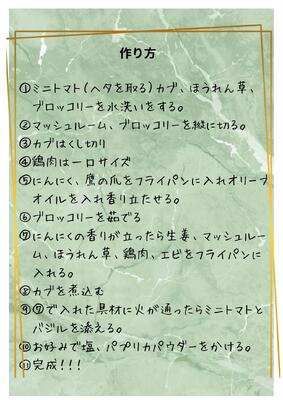 作り方
①ミニトマト(ヘタを取る)カブ、ほうれん草、
ブロッコリーを水洗いをする。
②マッシュルーム、ブロッコリーを縦に切る。
③カブはくし切り
④鶏肉は一口サイズ
⑤にんにく、鷹の爪をフライパンに入れオリーブ
オイルを入れ香り立たせる。
⑥ブロッコリーを茹でる
⑦にんにくの香りが立ったら生姜、マッシュルー
ム、ほうれん草、鶏肉、エビをフライパンに
入れる。
⑧カブを煮込む
⑨⑦で入れた具材に火が通ったらミニトマトと
バジルを添える。
⑩お好みで塩、パプリカパウダーをかける。
⑪完成!!!